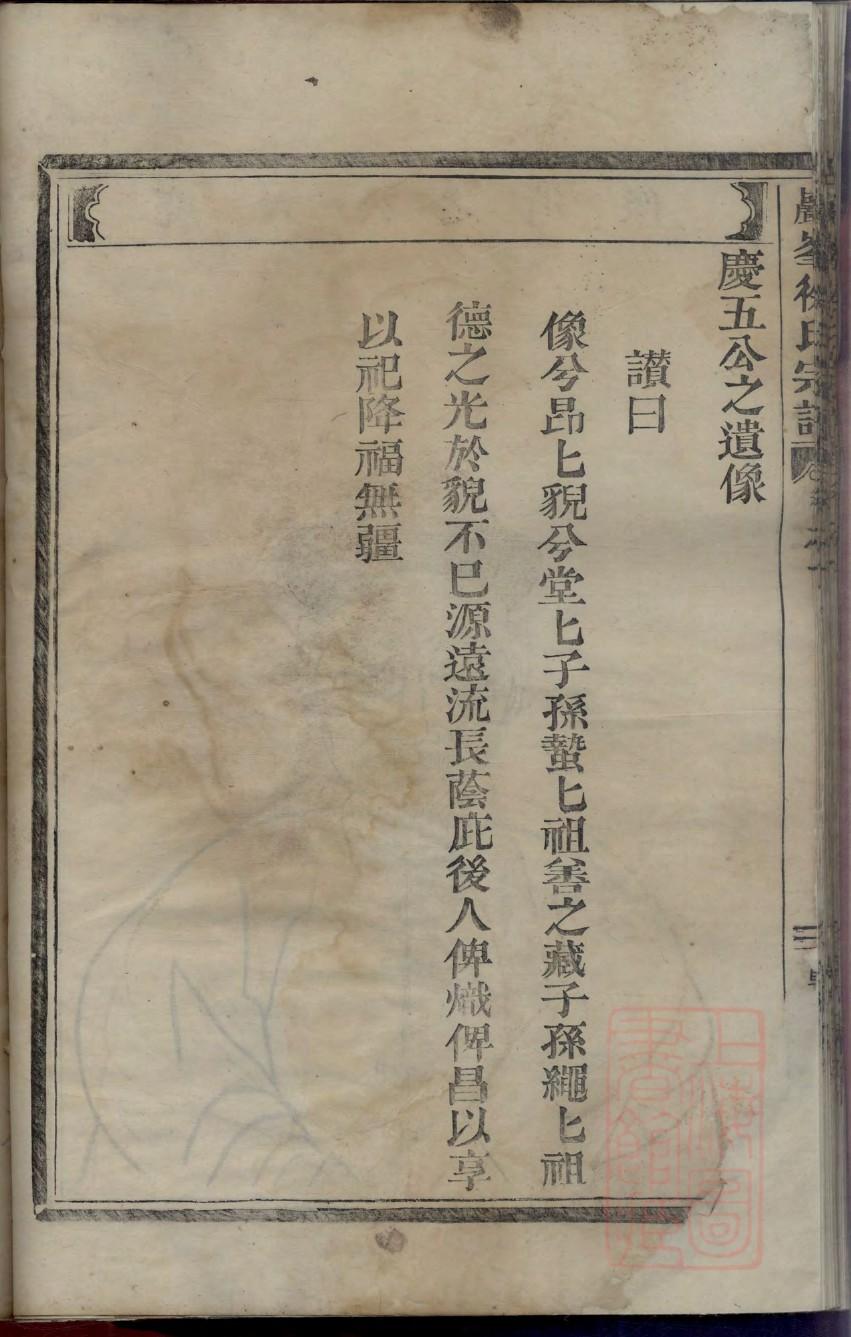 慶五公之遺像
讃曰
像兮昂匕貌兮堂匕子孫蟄匕祖善之藏子孫繩匕祖
德之光於貌不巳源遠流長蔭庇後人俾熾俾昌以享
以祀降福無疆
峯徐氏宗譜
上海圖
書館藏